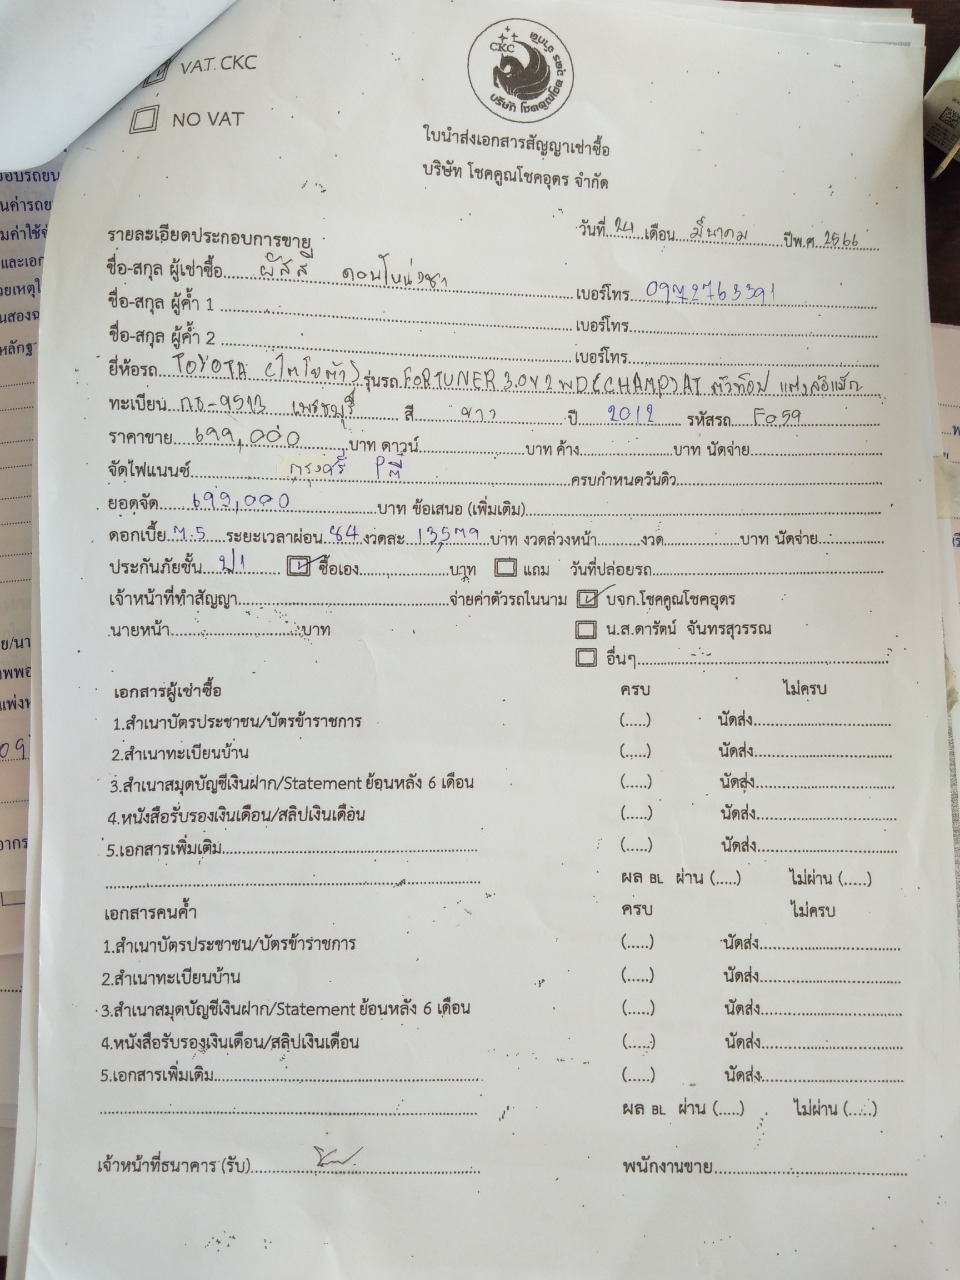 VAT. CKC
NO VAT
CKC
บริษัท โชคคูณโชค อุดร จำกัด
ใบนำส่งเอกสารสัญญาเช่าซื้อ
บริษัท โชคคูณโชคอุดร จำกัด
วันที่ 24 เดือน มีนาคม ปีพ.ศ. 2566
รายละเอียดประกอบการขาย
ชื่อ-สกุล ผู้เช่าซื้อ เบอร์โทร 0972763391
ชื่อ-สกุล ผู้ค้ำ 1 เบอร์โทร
ชื่อ-สกุล ผู้ค้ำ 2 เบอร์โทร
ยี่ห้อรถ TOYOTA (โตโยต้า) รุ่นรถ FORTUNER 3.0V 2WD (CHAMP) AT ตัวท็อป แต่งล้อแม็ก
ทะเบียน กธ-9513 เพชรบุรี สี ขาว ปี 2012 รหัสรถ F059
ราคาขาย 699,000 บาท ดาวน์ บาท ค้าง บาท นัดจ่าย
จัดไฟแนนซ์ กรุงศรี ครบกำหนดวันดิว
ยอดจัด 699,000 บาท ข้อเสนอ (เพิ่มเติม)
ดอกเบี้ย 7.5 ระยะเวลาผ่อน 84 งวดละ 13,579 บาท งวดล่วงหน้า งวด บาท นัดจ่าย
ประกันภัยชั้น ป1 ซื้อเอง บาท แถม วันที่ปล่อยรถ
เจ้าหน้าที่ทำสัญญา จ่ายค่าตัวรถในนาม บจก.โชคคูณโชคอุดร
นายหน้า บาท น.ส.ดารัตน์ จันทรสุวรรณ
อื่นๆ
เอกสารผู้เช่าซื้อ ครบ ไม่ครบ
1.สำเนาบัตรประชาชน/บัตรข้าราชการ (.....) นัดส่ง
2.สำเนาทะเบียนบ้าน (.....) นัดส่ง
3.สำเนาสมุดบัญชีเงินฝาก/Statement ย้อนหลัง 6 เดือน (.....) นัดส่ง
4.หนังสือรับรองเงินเดือน/สลิปเงินเดือน (.....) นัดส่ง
5.เอกสารเพิ่มเติม (.....) นัดส่ง
ผล BL ผ่าน (.....) ไม่ผ่าน (.....)
เอกสารคนค้ำ ครบ ไม่ครบ
1.สำเนาบัตรประชาชน/บัตรข้าราชการ (.....) นัดส่ง
2.สำเนาทะเบียนบ้าน (.....) นัดส่ง
3.สำเนาสมุดบัญชีเงินฝาก/Statement ย้อนหลัง 6 เดือน (.....) นัดส่ง
4.หนังสือรับรองเงินเดือน/สลิปเงินเดือน (.....) นัดส่ง
5.เอกสารเพิ่มเติม (.....) นัดส่ง
ผล BL ผ่าน (.....) ไม่ผ่าน (.....)
เจ้าหน้าที่ธนาคาร (รับ) พนักงานขาย